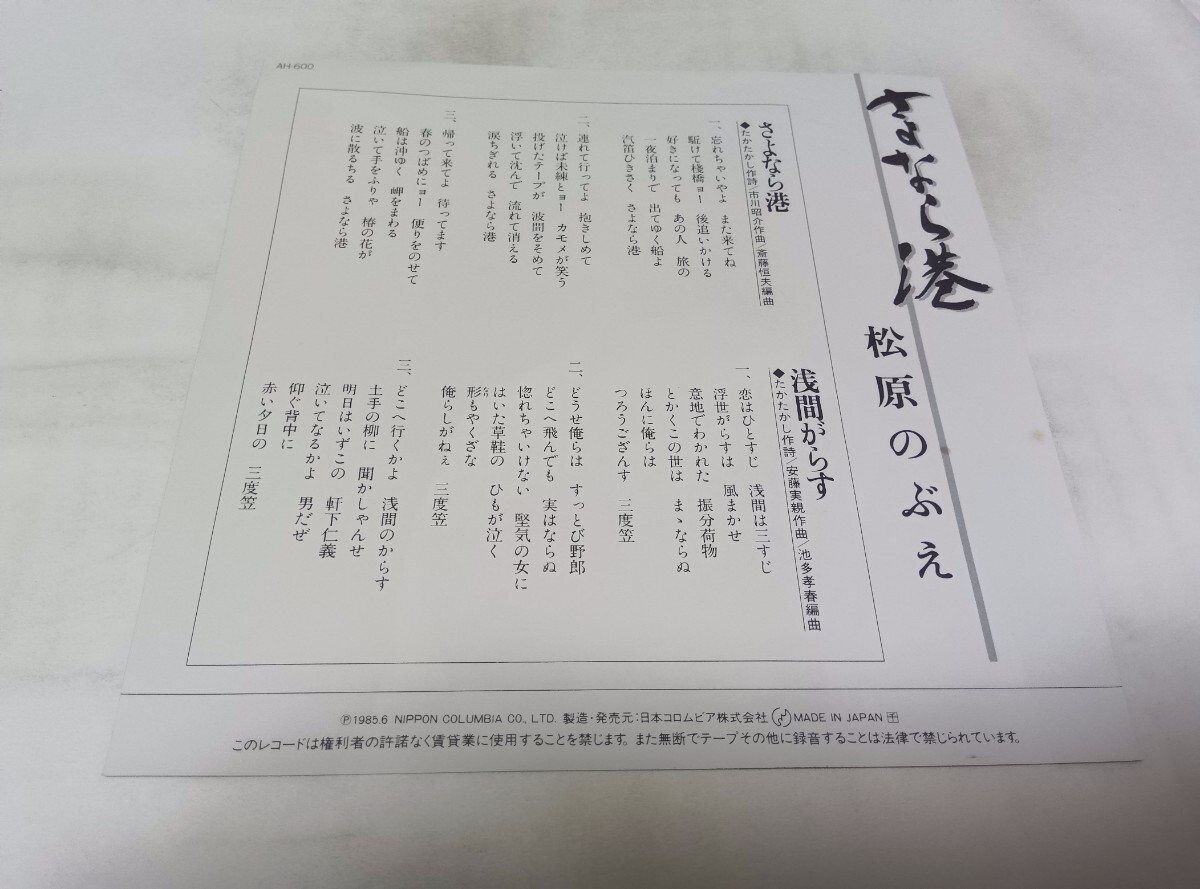 AH-600
さよなら港
松原のぶえ
さよなら港
◆たかたかし作詩/市川昭介作曲/斎藤恒夫編曲
一、忘れちゃいやよ　また来てね
駈けて桟橋ョー　後追いかける
好きになっても　あの人　旅の
一夜泊まりで　出てゆく船よ
汽笛ひきさく　さよなら港
二、連れて行ってよ　抱きしめて
泣けば未練とョー　カモメが笑う
投げたテープが　波間をそめて
浮いて沈んで　流れて消える
涙ちぎれる　さよなら港
三、帰って来てよ　待ってます
春のつばめにョー　便りをのせて
船は沖ゆく　岬をまわる
泣いて手をふりゃ　椿の花が
波に散るちる　さよなら港
浅間がらす
◆たかたかし作詩/安藤実親作曲/池多孝春編曲
一、恋はひとすじ　浅間は三すじ
浮世がらすは　風まかせ
意地でわかれた　振分荷物
とかくこの世は　まゝならぬ
ほんに俺らは
つろうござんす　三度笠
二、どうせ俺らは　すっとび野郎
どこへ飛んでも　実はならぬ
惚れちゃいけない　堅気の女に
はいた草鞋の　ひもが泣く
形もやくざな
俺らしがねぇ　三度笠
三、どこへ行くかよ　浅間のからす
土手の柳に　聞かしゃんせ
明日はいずこの　軒下仁義
泣いてなるかよ　男だぜ
仰ぐ背中に
赤い夕日の　三度笠
Ⓟ1985.6 NIPPON COLUMBIA CO., LTD. 製造・発売元：日本コロムビア株式会社 MADE IN JAPAN
このレコードは権利者の許諾なく賃貸業に使用することを禁じます。また無断でテープその他に録音することは法律で禁じられています。